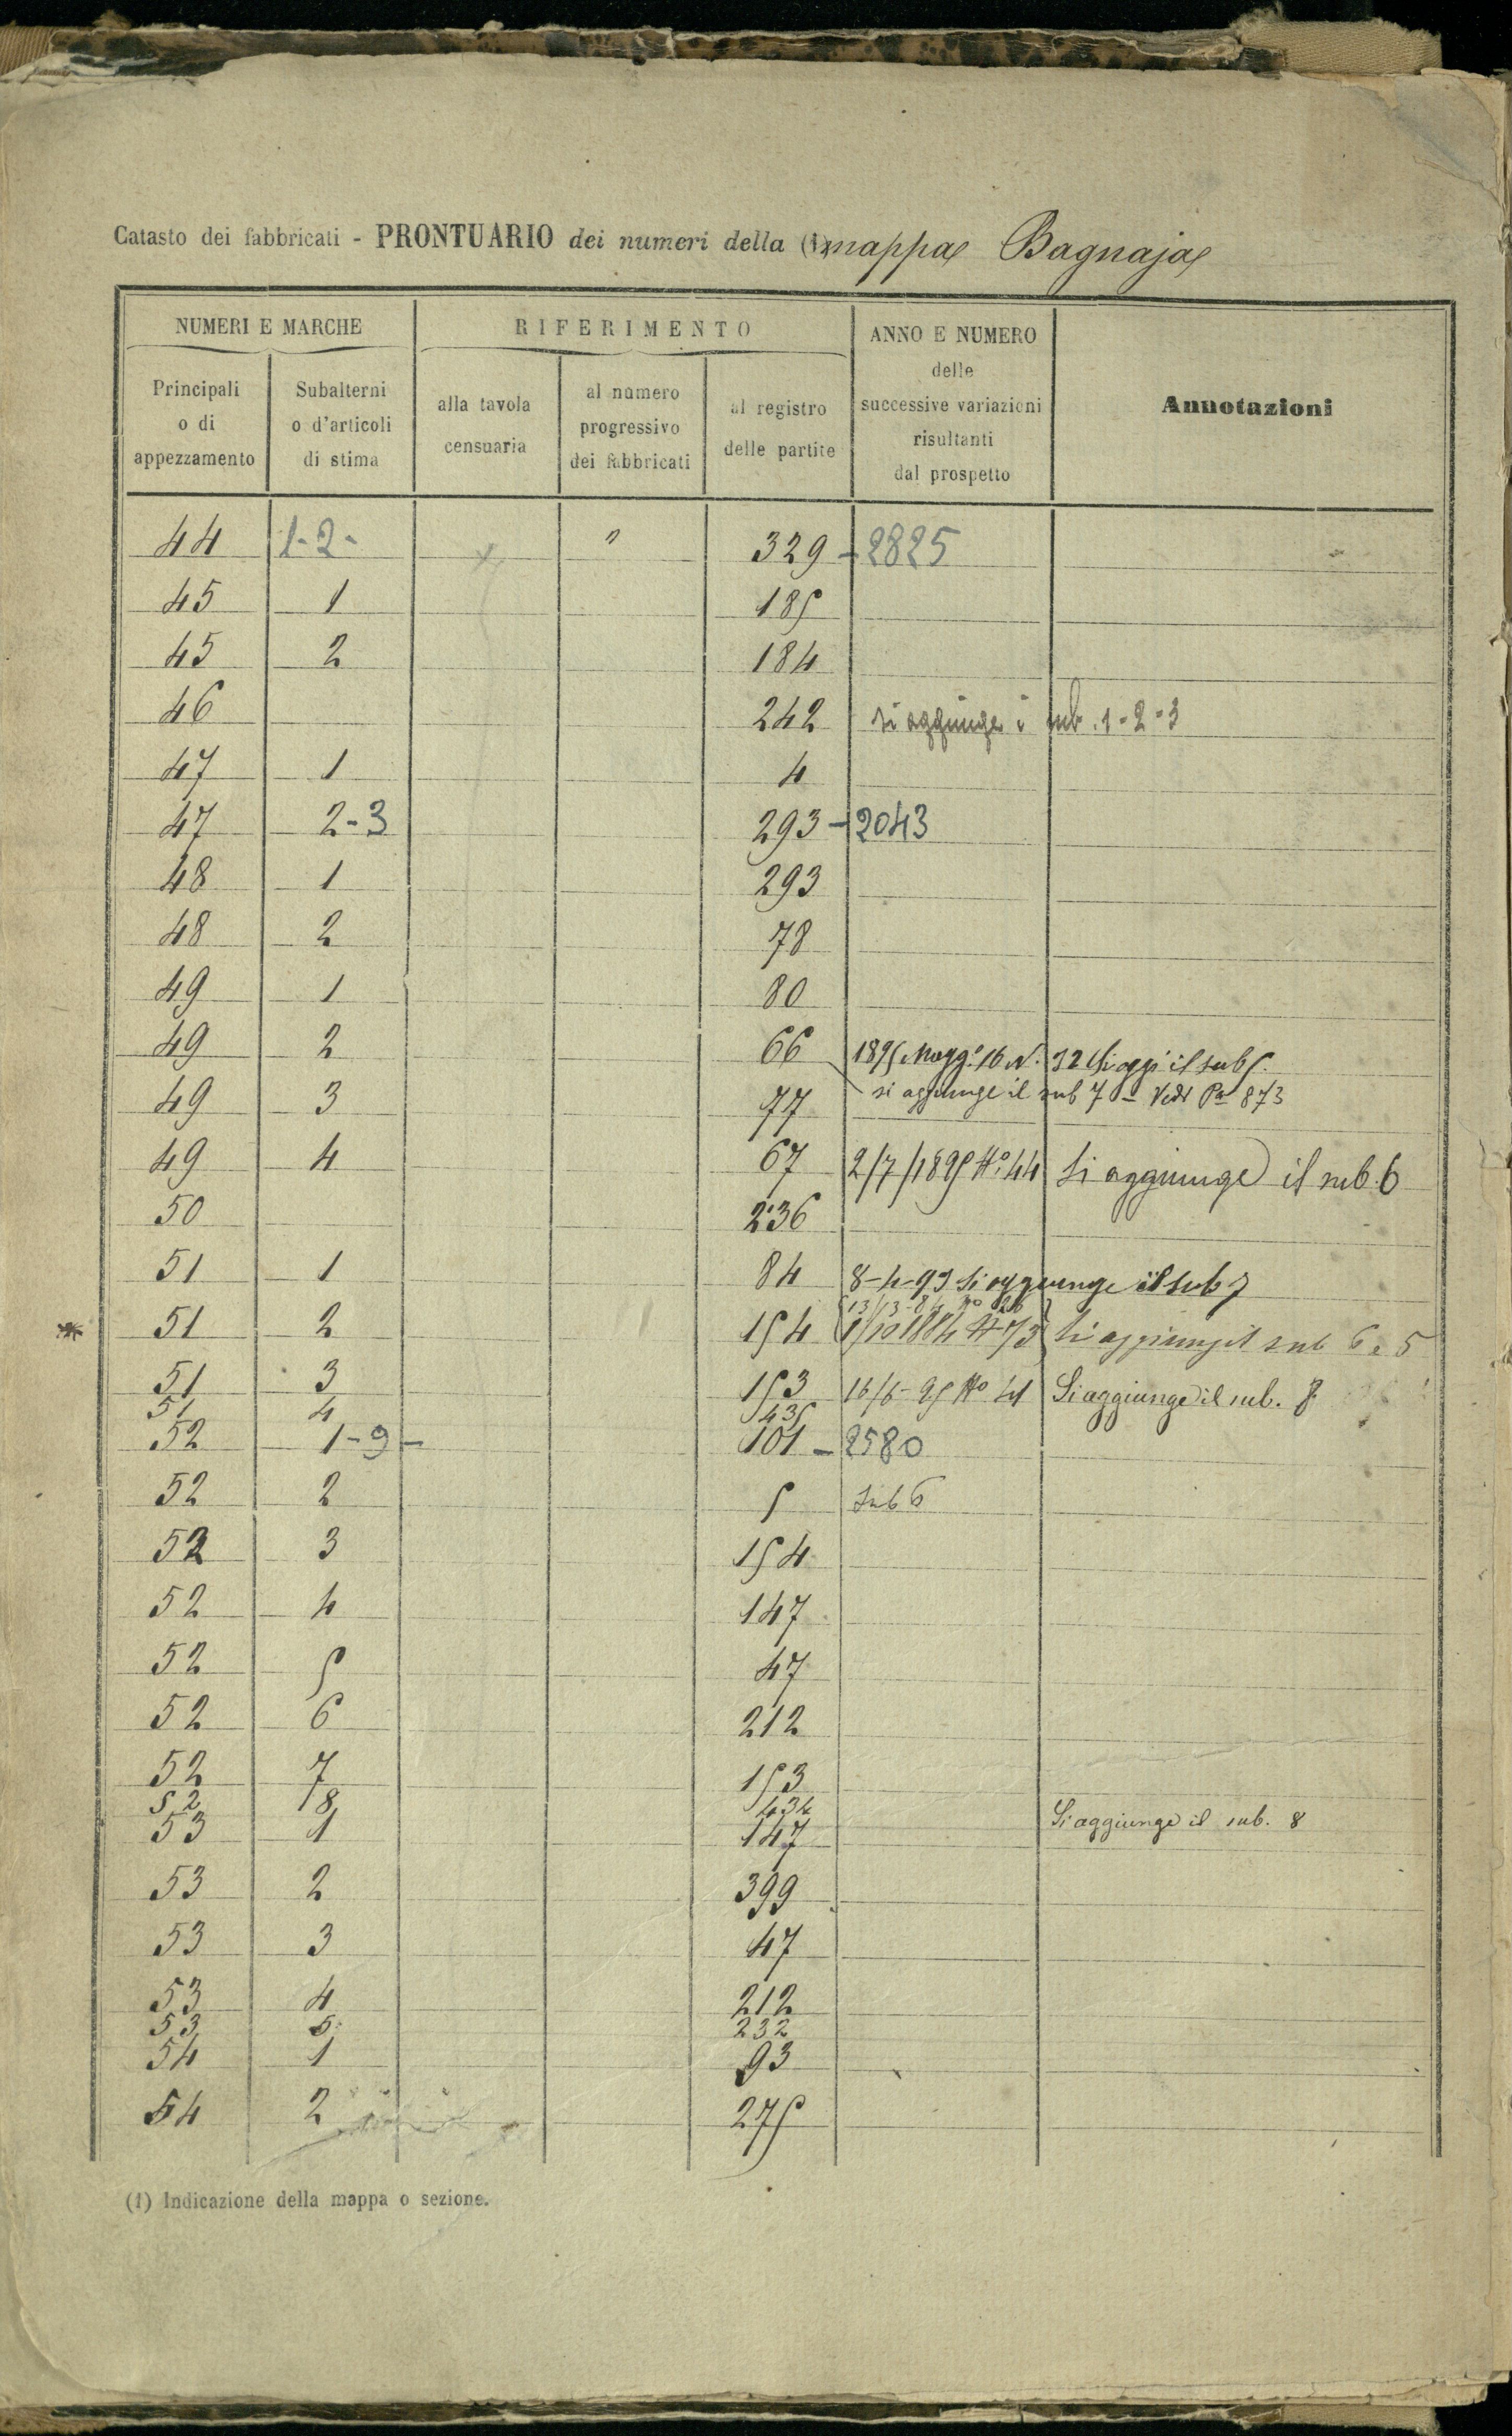 Catasto dei fabbricati - PRONTUARIO dei numeri della (1) mappa Bagnaja
NUMERI E MARCHE
RIFERIMENTO
ANNO E NUMERO
delle
successive variazioni
risultanti
dal prospetto
Annotazioni
Principali
o di
appezzamento
Subalterni
o d'articoli
di stima
alla tavola
censuaria
al numero
progressivo
dei fabbricati
al registro
delle partite
44 1-2- " 329 - 2825
45 1 185
45 2 184
46 242 si aggiunge i sub. 1-2-3
47 1 4
47 2-3 293 - 2043
48 1 293
48 2 78
49 1 80
49 2 66 1895 Magg.o 16 N. 32 Si aggi il sub 5.
49 3 77 si aggiunge il sub 7 - Vedi Pa 873
49 4 67 2/7/1895 No. 44 Si aggiunge il sub. 6
50 236
51 1 84 8-4-93 Si aggiunge il sub 7
51 2 154 sub 6 e 5
51 3 153 16/6-95 No 41 Si aggiunge il sub. 8
51 4 435
52 1-9- 101 - 2580
52 2 5 Sub 6
52 3 154
52 4 147
52 5 47
52 6 212
52 7 153
52 8 434
53 1 147 Si aggiunge il sub. 8
53 2 399
53 3 47
53 4 212
53 5 232
54 1 93
54 2 275
(1) Indicazione della mappa o sezione.